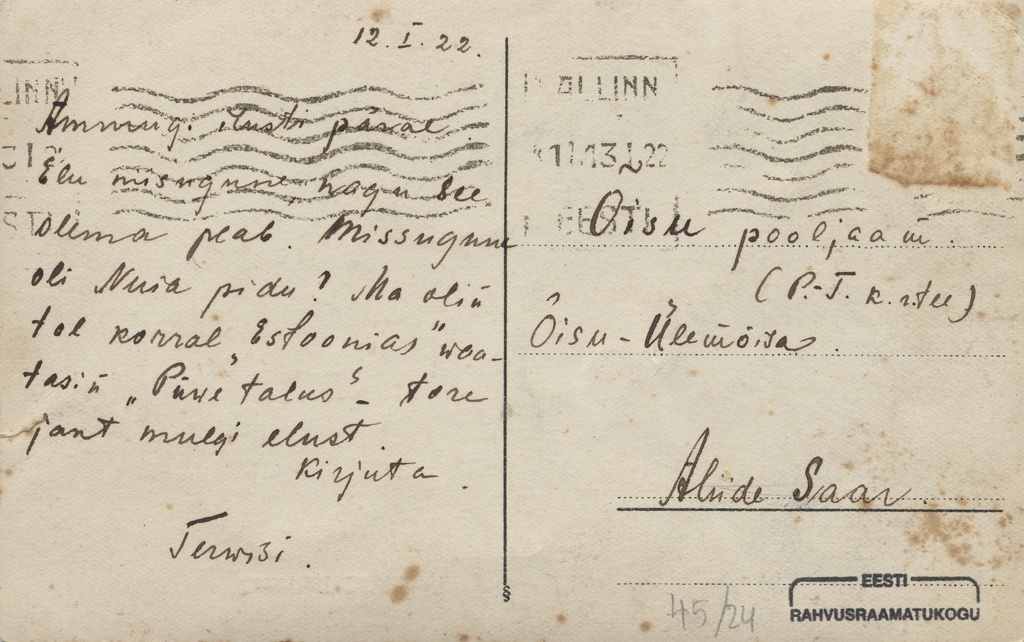 12. I. 22.
ilusti pärale
Elu missugune, nagu see
olema peab. Missugune
oli Nuia pidu? Ma olin
tol korral „Estoonias" waa-
tasin „Püwe talus" - tore
jant mulgi elust.
Kirjuta.
Terwisi.
LINN
EESTI
TALLINN
13 I 22
EESTI
Õisu pooljaam.
(P.-T. k. rtee)
Õisu-Ülemõisa.
Aliide Saar.
45/24
EESTI
RAHVUSRAAMATUKOGU